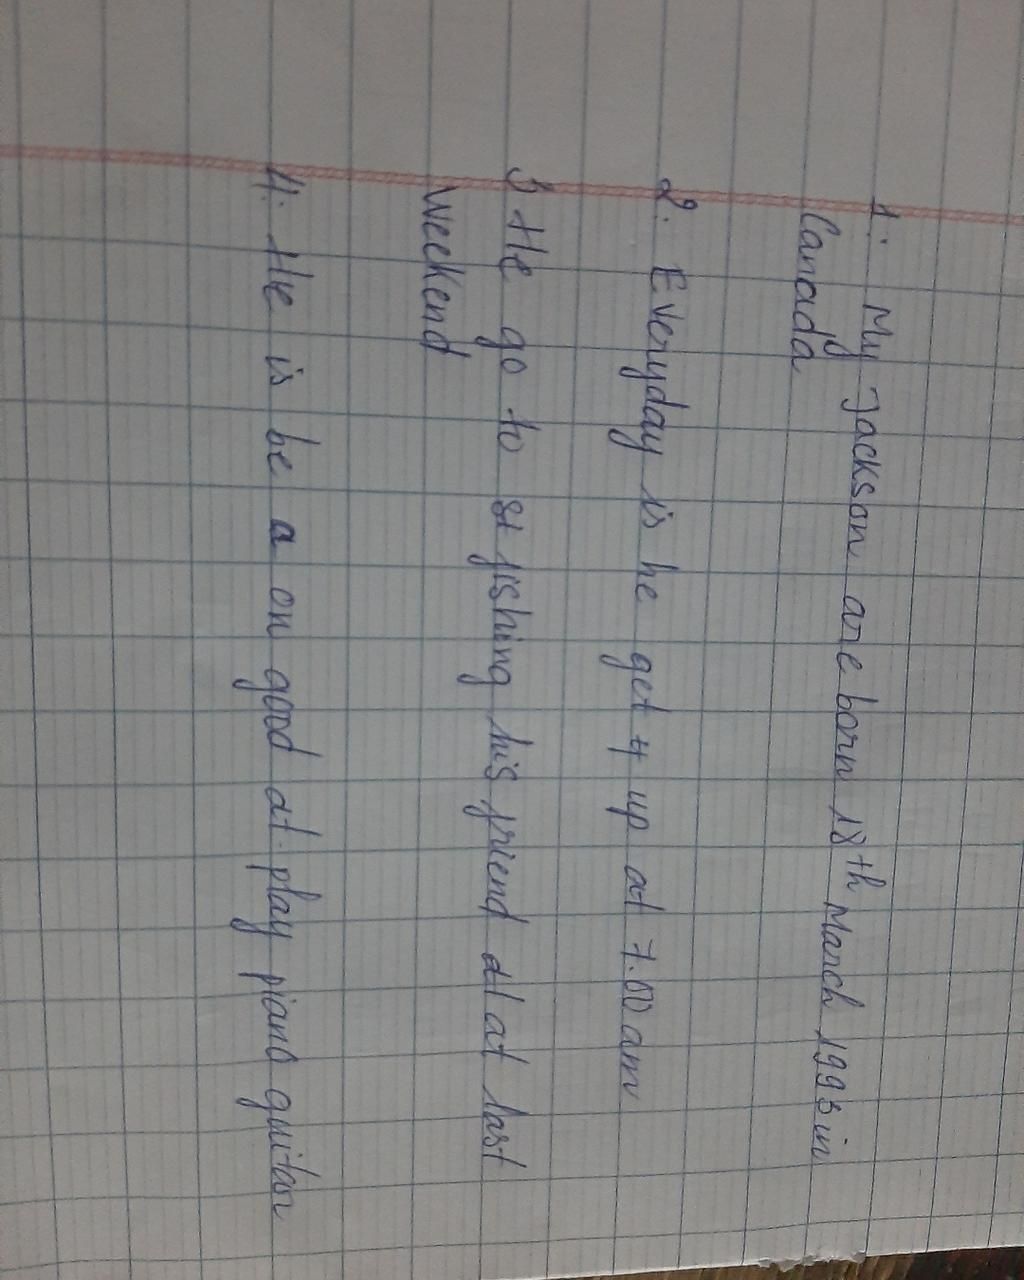 1. My Jackson are born 18th March 1993 in
Canada
2. Everyday is he get 4 up at 7.00 am
3 He go to st fishing his friend at at last
Weekend
4. He is be a on good at play piano guitar